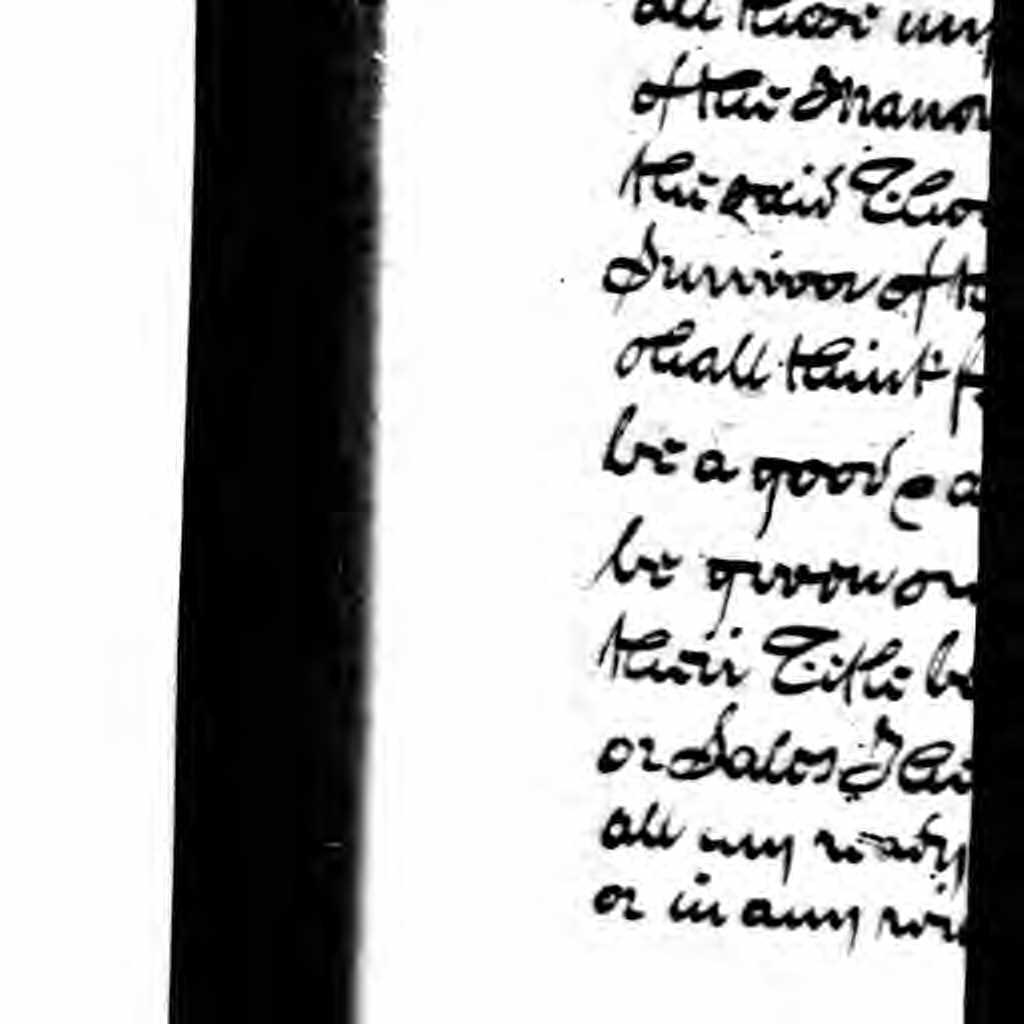 all those my
of the Manor
the said Tho
Survivor of t
shall think f
be a good & a
be given or
their Title be
or Sales I
all my ready
or in any